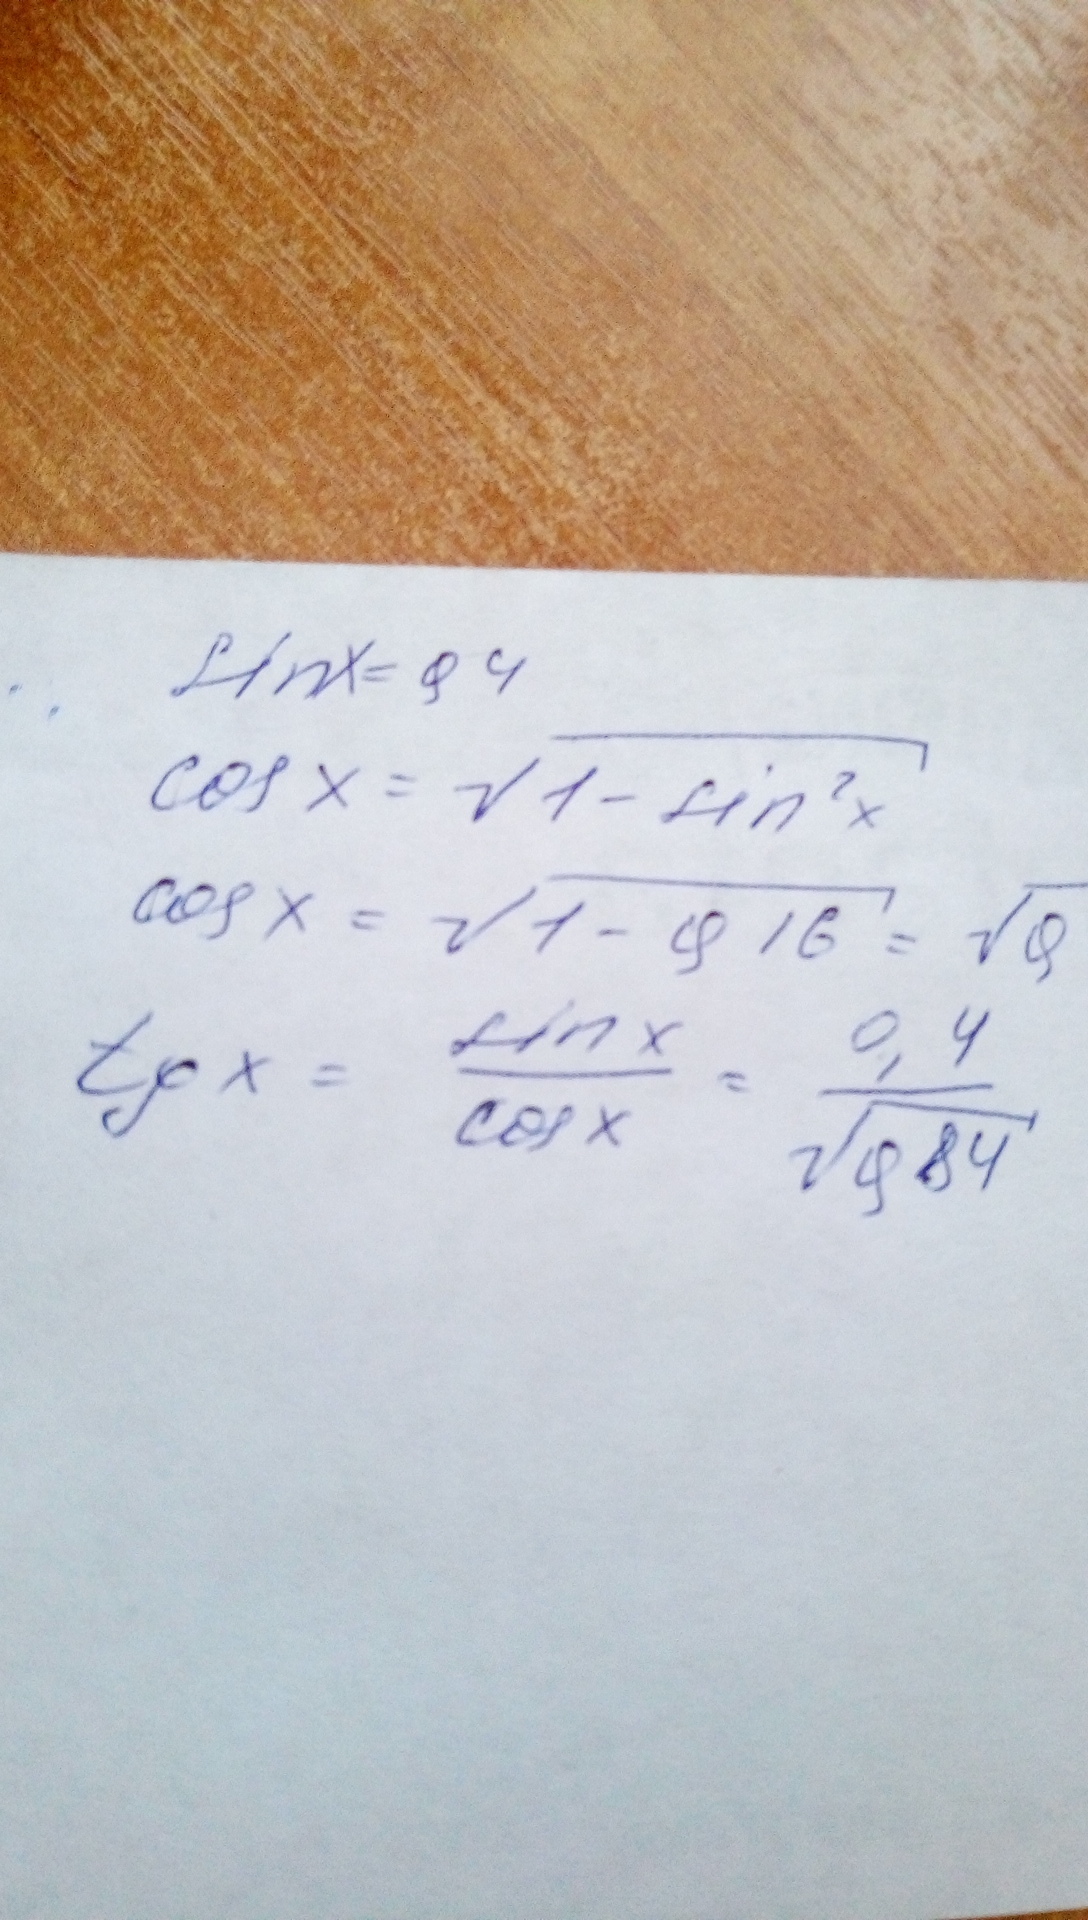 sinx = 0,4
cos x = √1 - sin²x
cos x = √1 - 0,16 = √0
tg x = sin x / cos x = 0,4 / √0,84